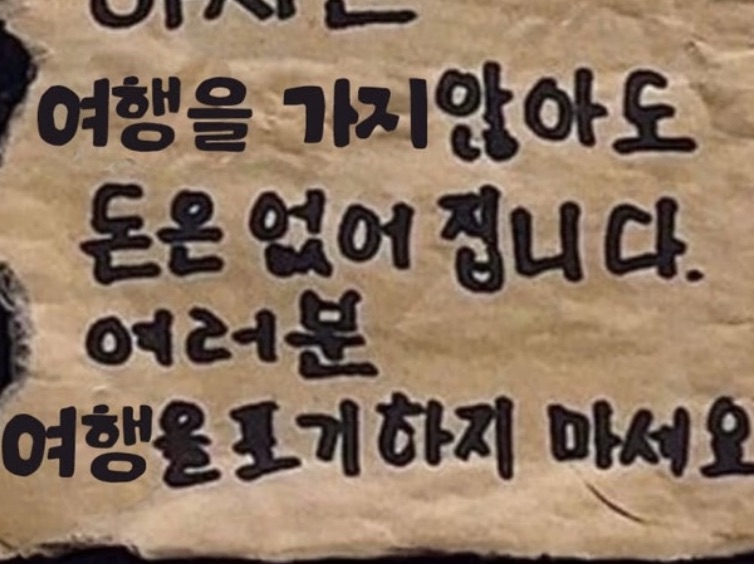 여행을 가지않아도
돈은 없어 집니다.
여러분
여행을포기하지 마세요